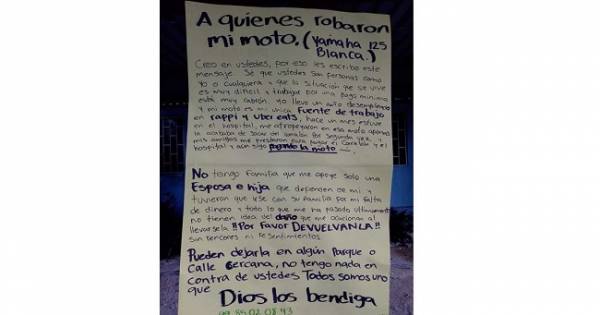 A quienes robaron
mi moto. (Yamaha 125
Blanca.)
Creo en ustedes, por eso les escribo este
mensaje. Sé que ustedes son personas como
yo o cualquiera y que la situación que se vive
es muy difícil y trabajar por una paga minima
está muy cabrón. Yo llevo un año desempleado
y mi moto es mi unica Fuente de trabajo
en rappi y Uber eats, hace un mes estuve
en el hospital, me atropellaron en esa moto apenas
la acababa de sacar del corralón por segunda vez,
mis amigos me prestaron para pagar el Corralón y el
hospital y aún sigo pagando la moto
No tengo Familia que me apoye solo una
Esposa e hija que dependen de mi y
tuvieron que irse con su familia por mi falta
de dinero y todo lo que me ha pasado ultimamente
no tienen idea del daño que me ocacionan al
llevarsela !!Por Favor DEVUELVANLA!!
sin rencores ni resentimientos.
Pueden dejarla en algún Parque o
Calle Cercana, no tengo nada en
contra de ustedes Todos somos uno
que
Dios los bendiga